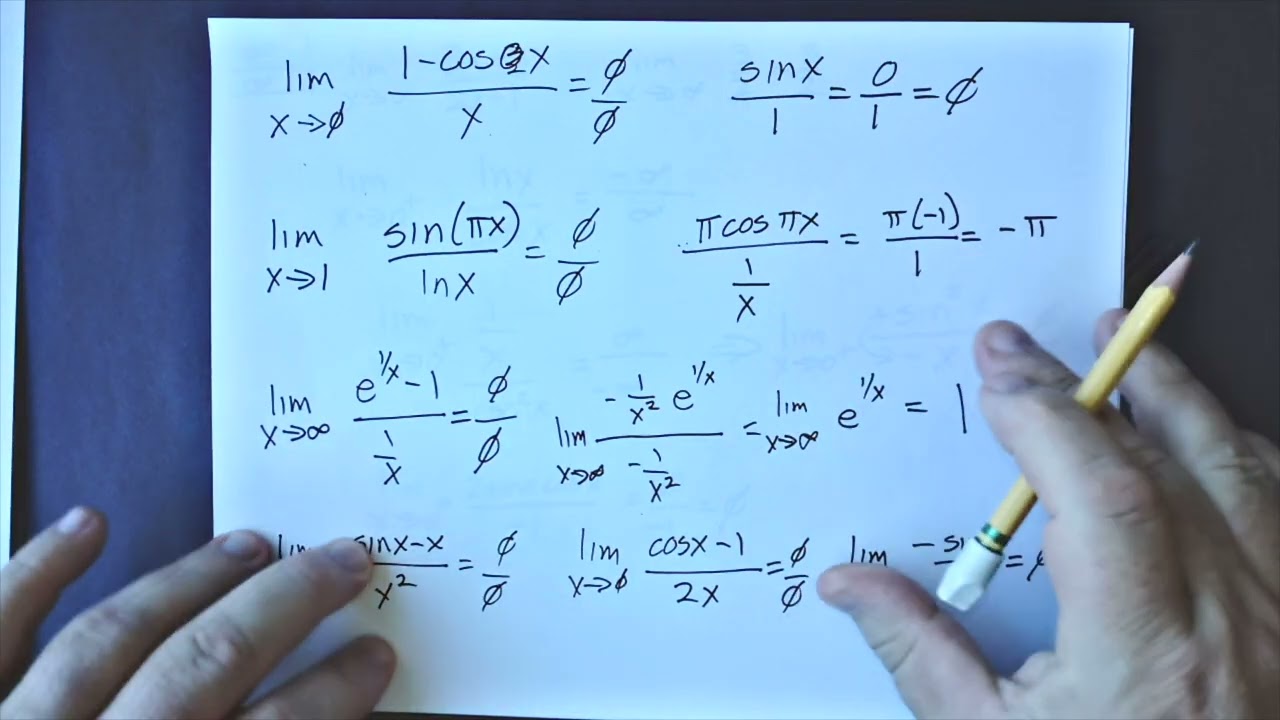 lim x→∅ 1-cos2x / x = ∅/∅ sinx/1 = 0/1 = ∅
lim x→1 sin(πx) / lnx = ∅/∅ πcosπx / (1/x) = π(-1)/1 = -π
lim x→∞ (e^(1/x) - 1) / (1/x) = ∅/∅ lim x→∞ (-1/x² e^(1/x)) / (-1/x²) = lim x→∞ e^(1/x) = 1
sinx-x / x² = ∅/∅ lim x→∅ cosx-1 / 2x = ∅/∅ lim